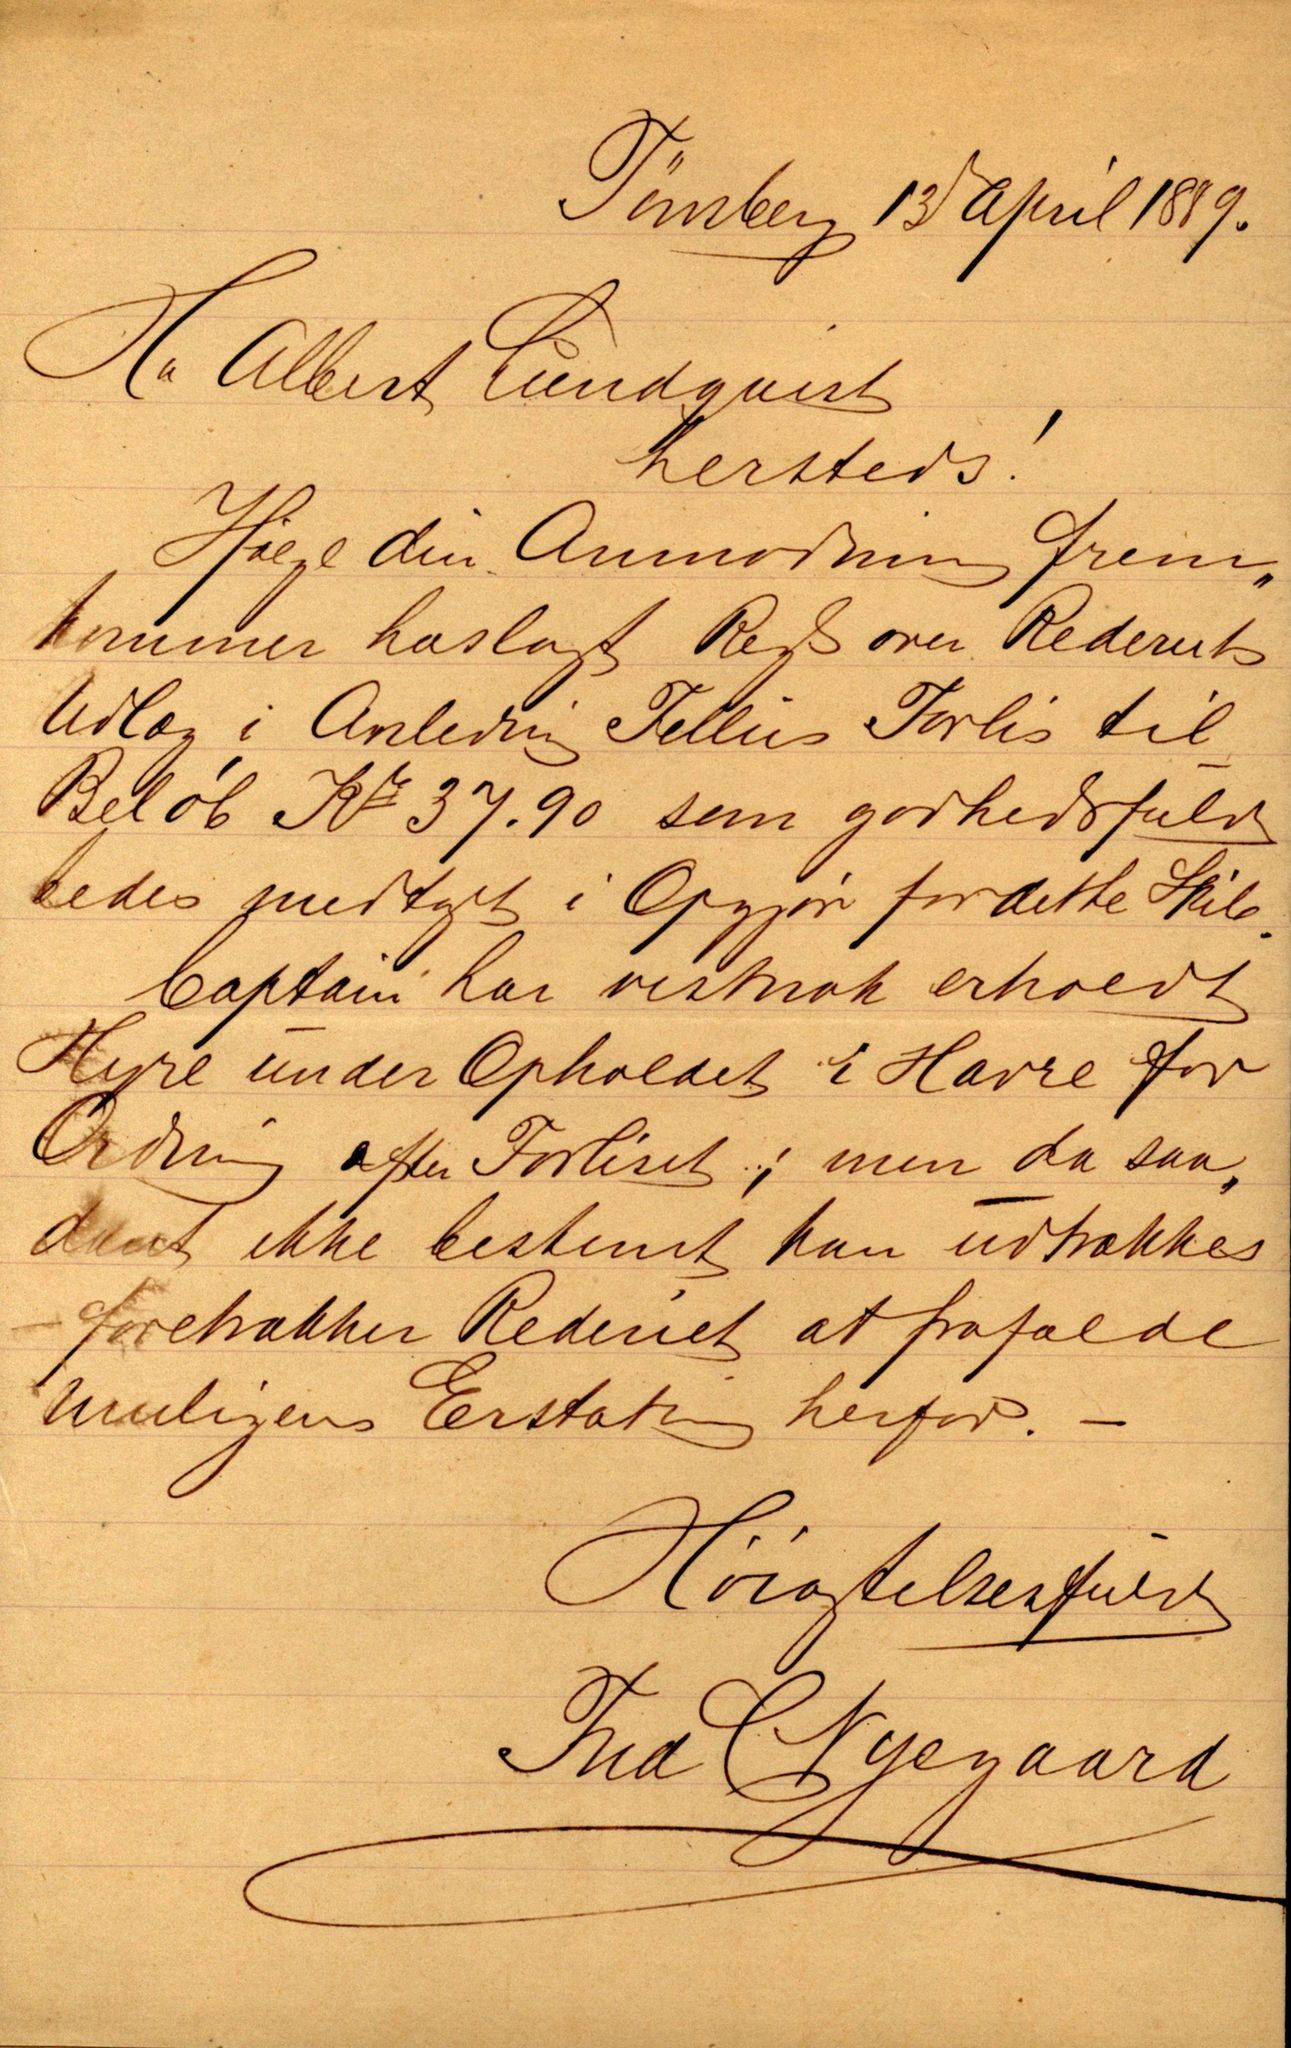 Tönsberg 13 April 1889.
Hr Albert Lundqvist
hersteds!
Ifölge din Anmodning frem„
kommer hoslagt Regn over Rederiets
Udlæg i Anledning Tellus Forlis til
Beløb Kr 37.90 som godhedsfuldt
bedes medtaget i Opgjør for dette Skib.
Captain har vistnok erholdt
Hyre under Opholdet i Havre for
Ordning efter Forliset; men da saa„
dant ikke bestemt kan udtrækkes
foretrækker Rederiet at frafalde
muligens Erstatning herfor. —
Høiagtelsesfuldt
Fred C Nyegaard